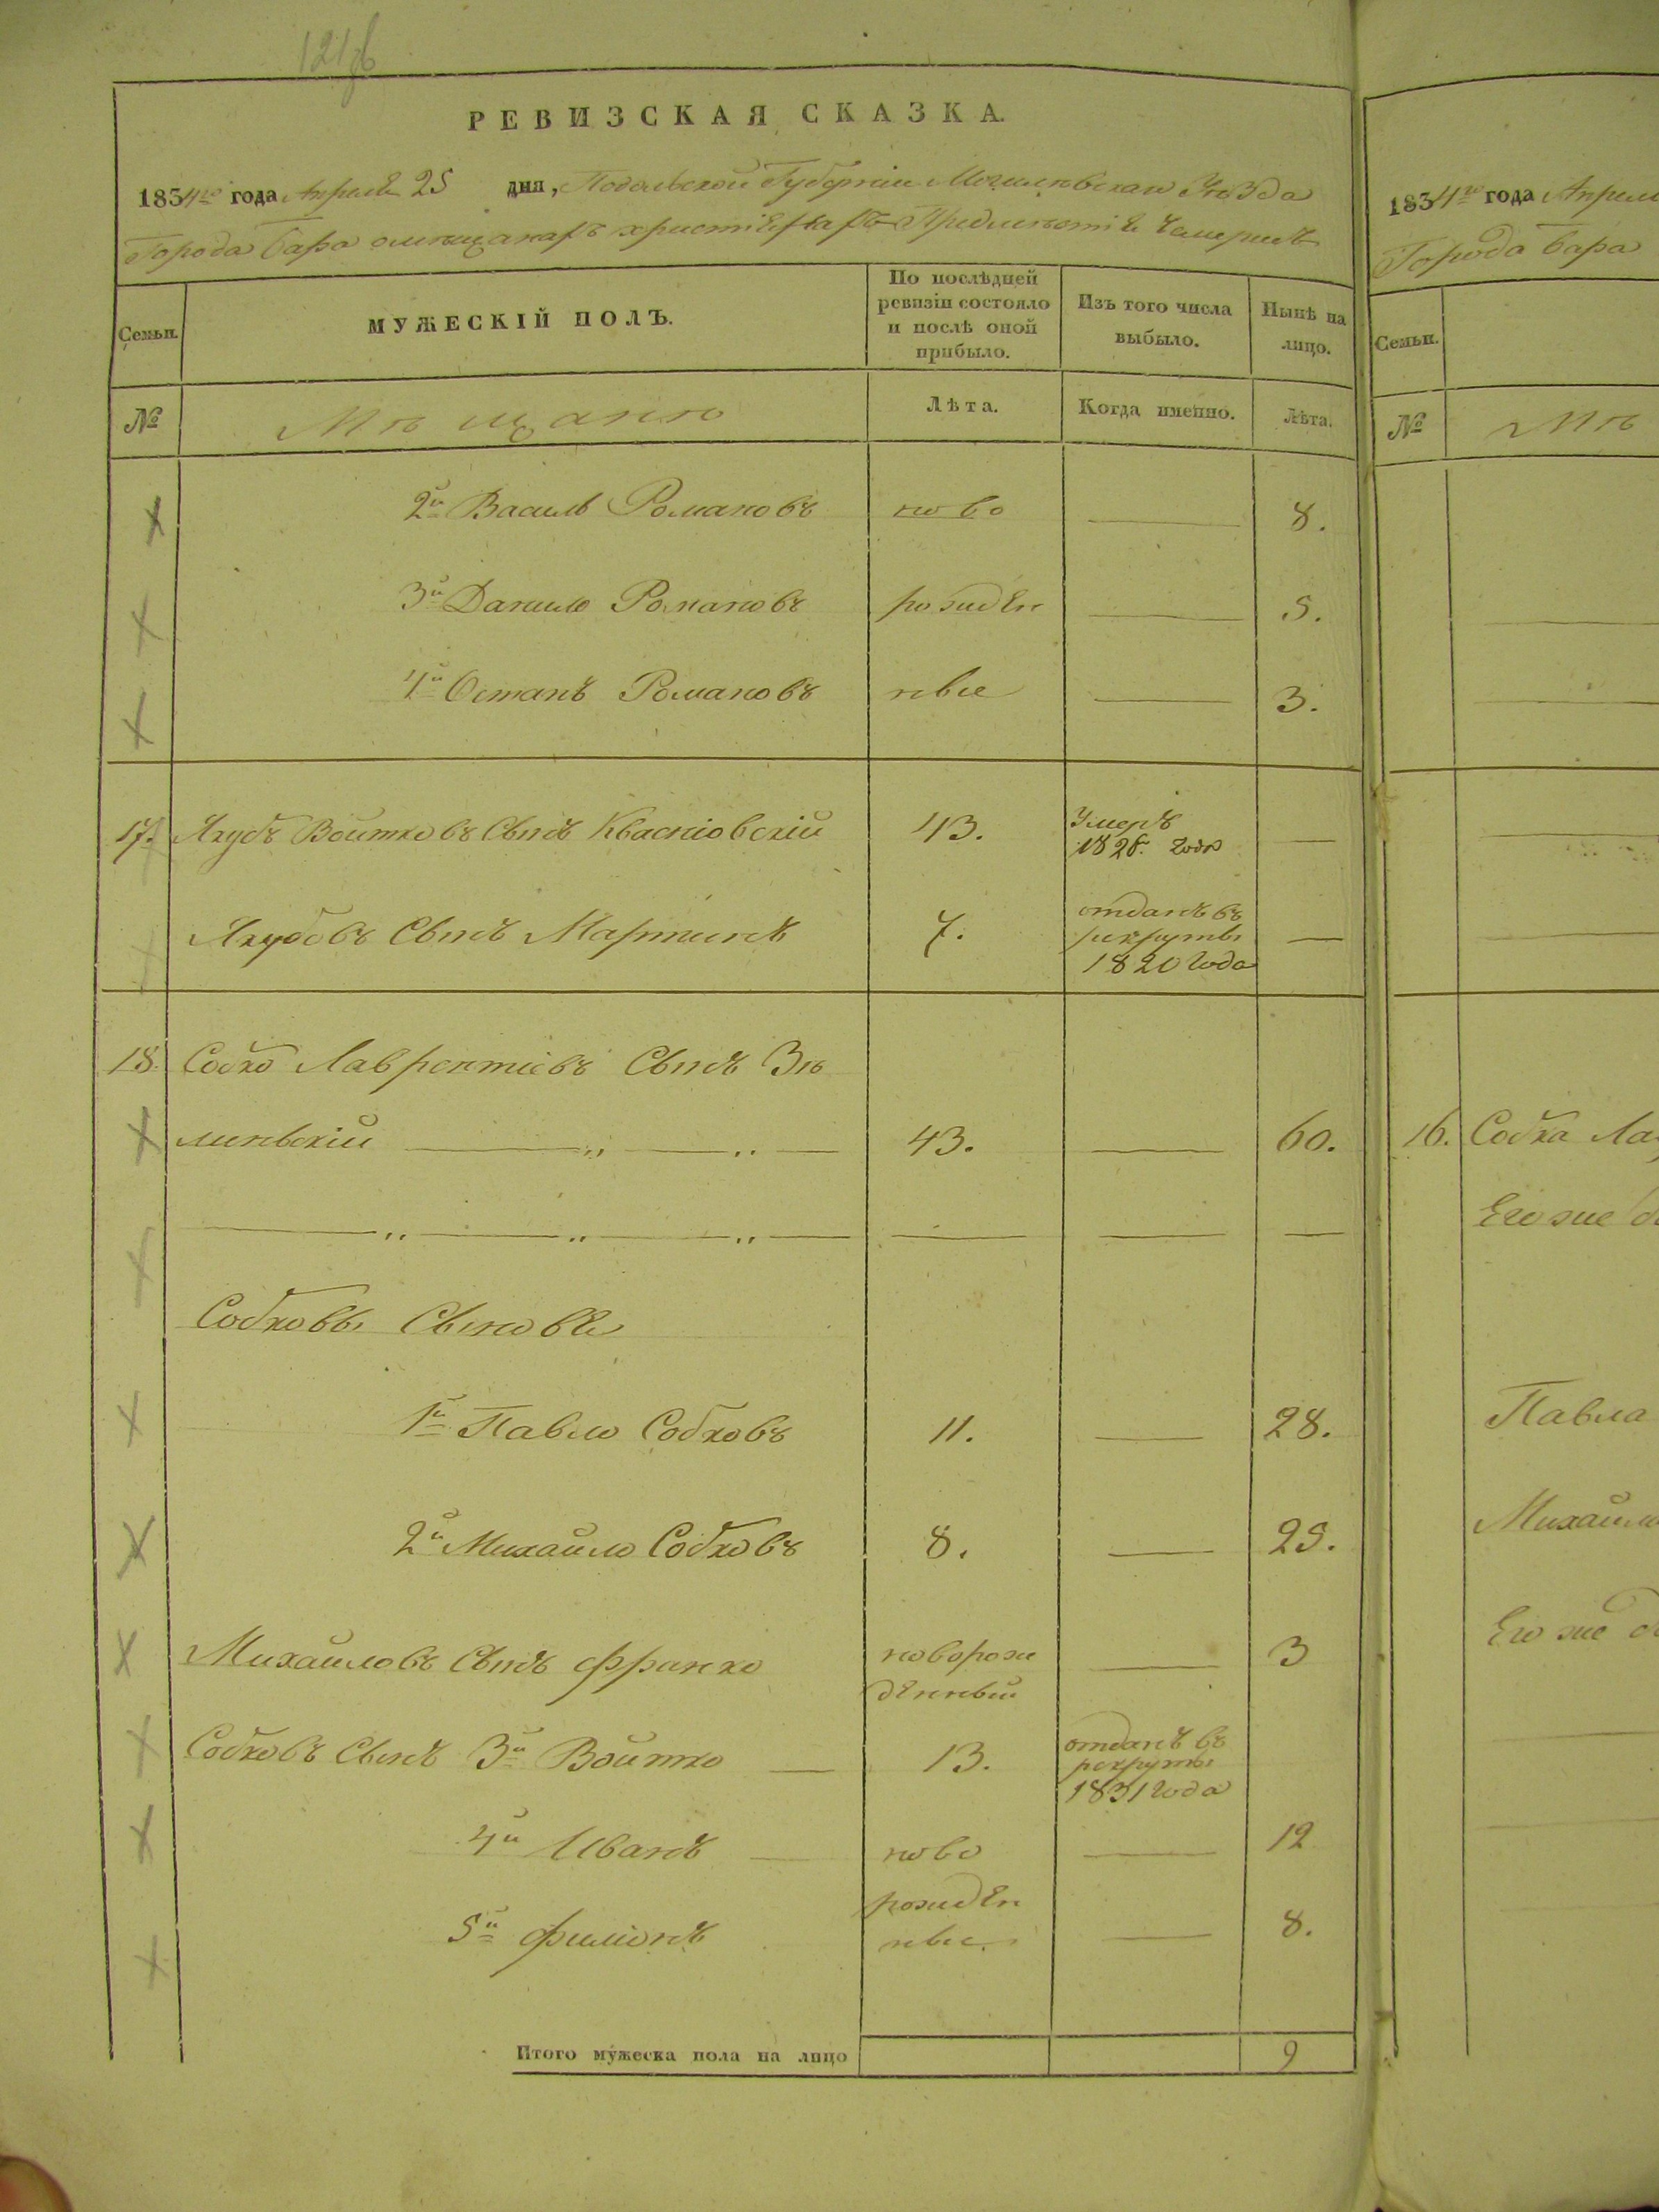 121об
РЕВИЗСКАЯ СКАЗКА.
1834го года Апреля 25 дня, Подольской Губернiи Могилевскаго Уѣзда
Города Бара омѣщанахъ христiянахъ Предмѣстiя Чемерисъ
Семьи.
МУЖЕСКІЙ ПОЛЪ.
По послѣдней ревизіи состояло и послѣ оной прибыло.
Изъ того числа выбыло.
Нынѣ на лицо.
№ Мѣщанѣ Лѣта. Когда именно. Лѣта.
2й Василь Романовъ ново 8.
3й Данило Романовъ рожден 5.
4й Остапъ Романовъ ные 3.
17. Якубъ Войтковъ Сынъ Квасніовскій 43. Умеръ 1828. года
Якубовъ Сынъ Мартинъ 7. отданъ въ рекруты 1820 года
18. Собко Лаврентіевъ Сынъ Зѣ
линскій 43. 60.
Собковы Сыновья
1й Павло Собковъ 11. 28.
2й Михайло Собковъ 8. 25.
Михайловъ Сынъ Франко новорож денный 3
Собковъ Сынъ 3й Войтко 13. отданъ въ рекруты 1831 года
4й Иванъ ново 12
рожден
5й Филіонъ ные 8.
Итого мужеска пола на лицо 9
1834го года Апреля
Города Бара
Семьи.
№ Мѣ
16. Собка Ла
Его же
Павла
Михайло
Его же